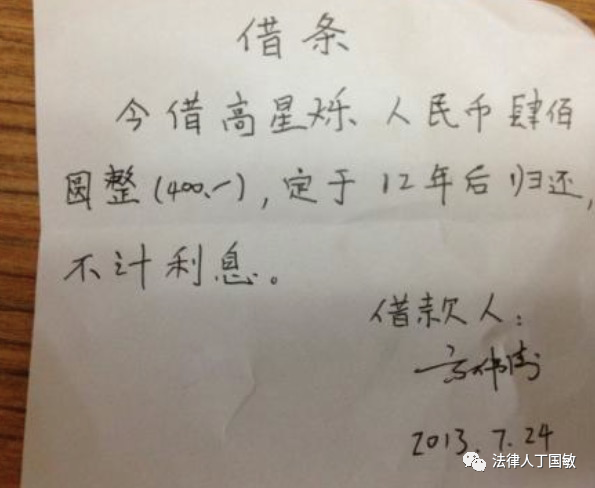 借条
今借高星烁人民币肆佰
圆整(400.一),定于12年后归还,
不计利息。
借款人:
2013.7.24
法律人丁国敏